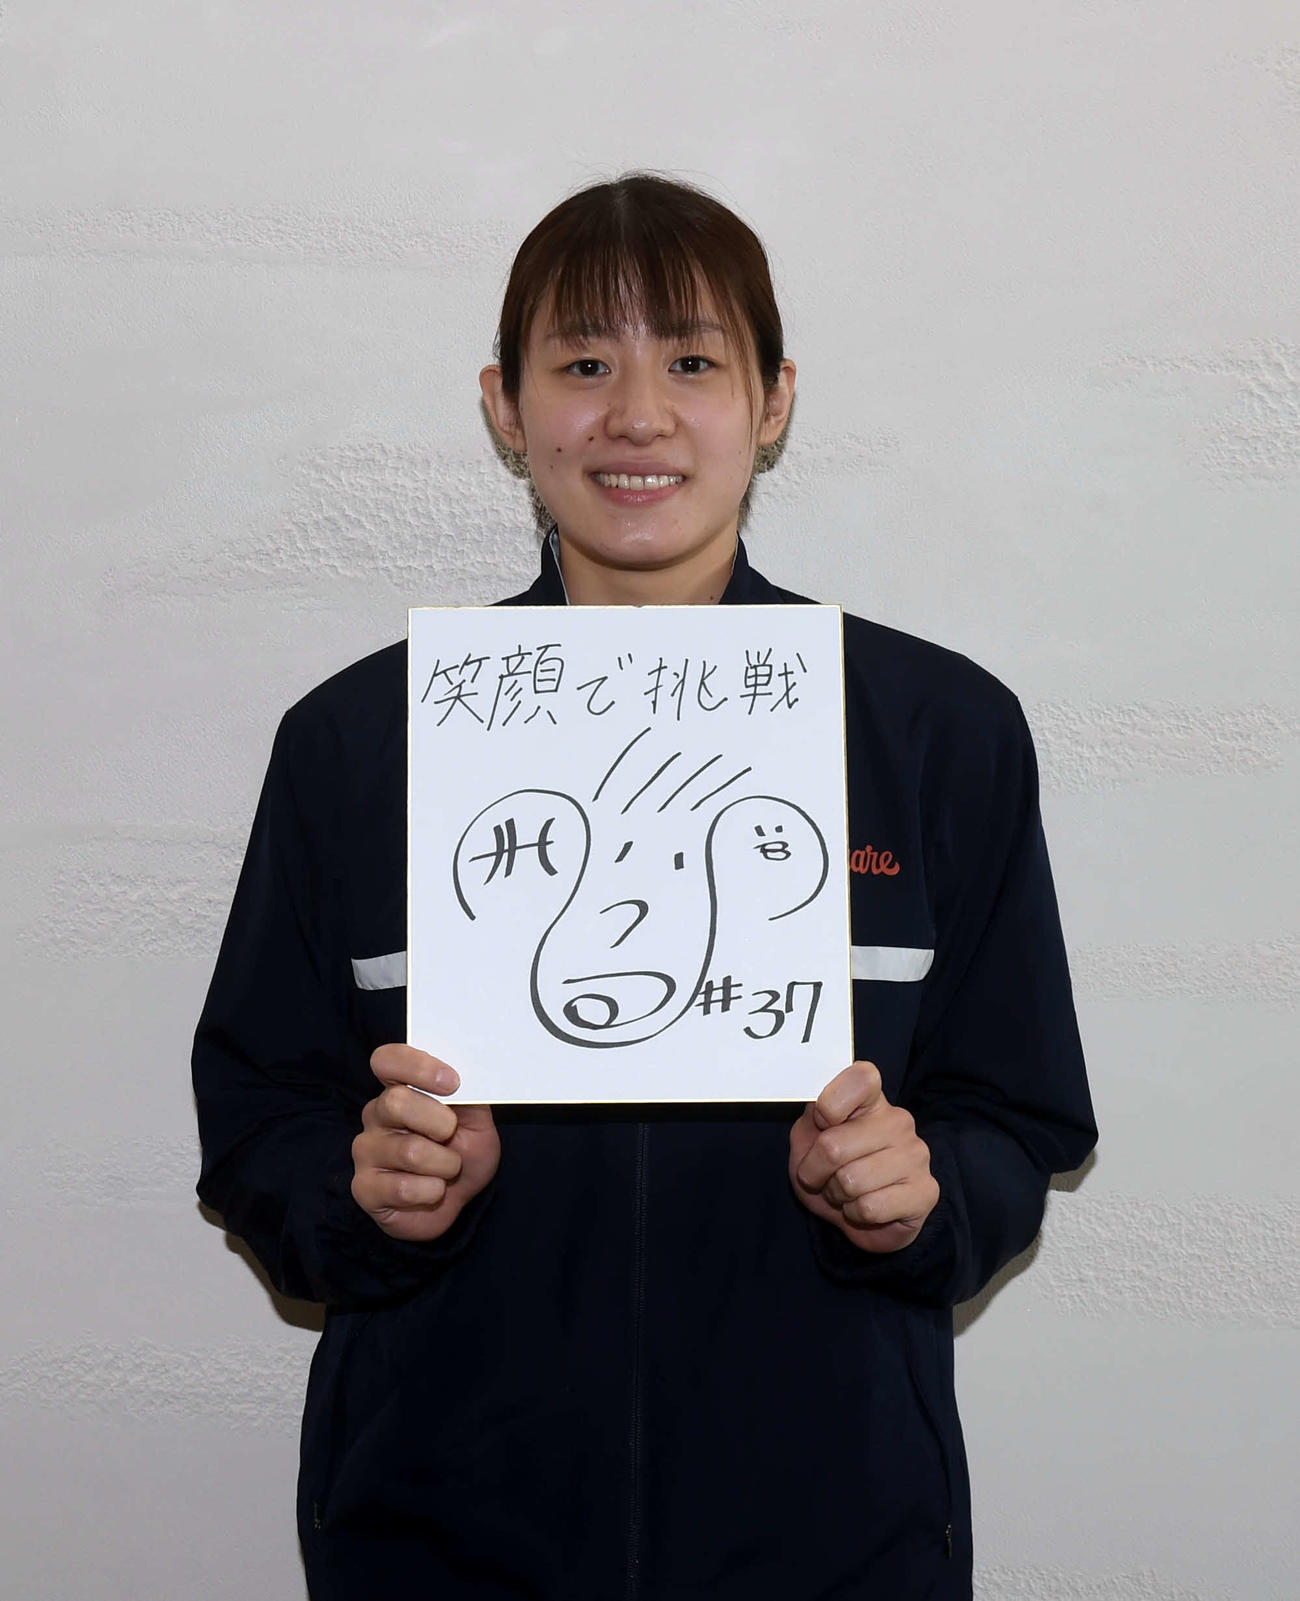 笑顔で挑戦
are
#37